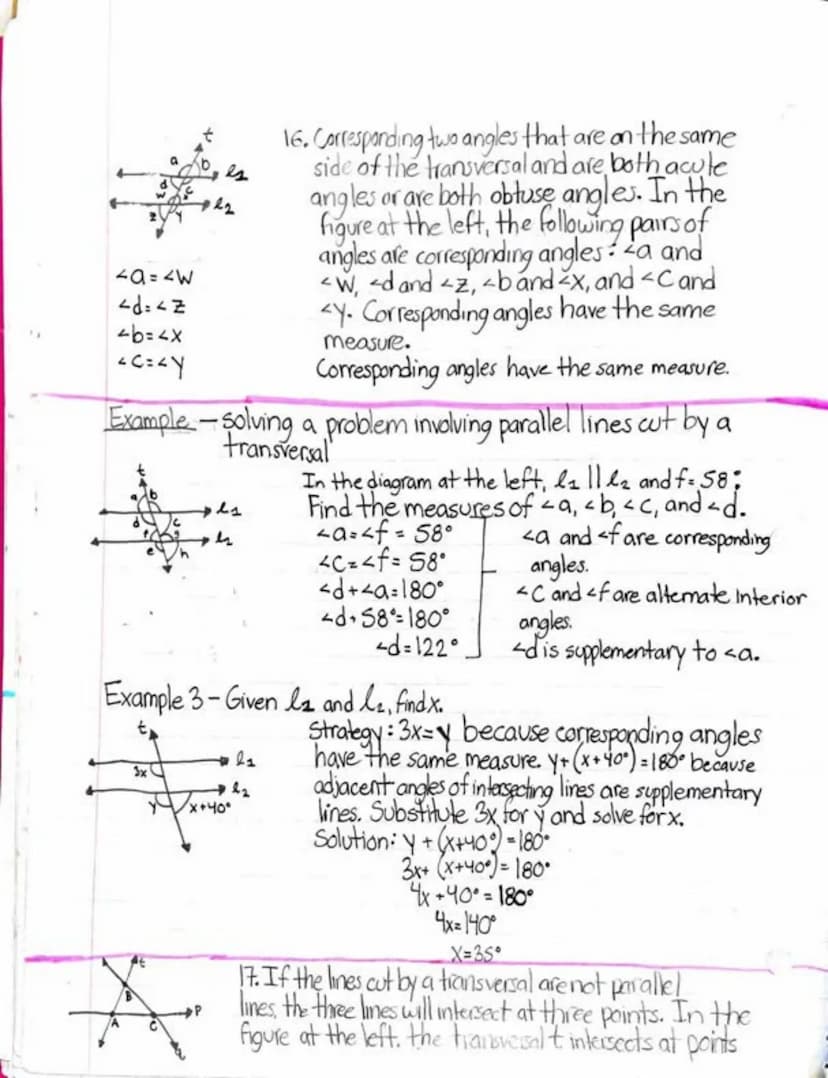 16. Corresponding two angles that are on the same
side of the transversal and are both acute
angles or are both obtuse angles. In the
figure at the left, the following pairs of
angles are corresponding angles: ∠a and
∠W, ∠d and ∠z, ∠b and ∠x, and ∠C and
∠y. Corresponding angles have the same
measure.
Corresponding angles have the same measure.
t
a
b
l1
d
c
w
x
l2
z
y
∠a = ∠W
∠d = ∠Z
∠b = ∠X
∠C = ∠Y
Example - solving a problem involving parallel lines cut by a
transversal
t
a b
l1
d c
f g
l2
e h
In the diagram at the left, l1 || l2 and f = 58°;
Find the measures of ∠a, ∠b, ∠c, and ∠d.
∠a = ∠f = 58°
∠C = ∠f = 58°
∠d + ∠a = 180°
∠d + 58° = 180°
∠d = 122°
∠a and ∠f are corresponding
angles.
∠C and ∠f are alternate Interior
angles.
∠d is supplementary to ∠a.
Example 3 - Given l1 and l2, find x.
t
l1
3x
l2
y
x+40°
Strategy: 3x = y because corresponding angles
have the same measure. y + (x+40°) = 180° because
adjacent angles of intersecting lines are supplementary
lines. Substitute 3x for y and solve for x.
Solution: y + (x+40°) = 180°
3x + (x+40°) = 180°
4x + 40° = 180°
4x = 140°
X = 35°
t
B
P
A
C
q
17. If the lines cut by a transversal are not parallel
lines, the three lines will intersect at three points. In the
figure at the left. the transversal t intersects at points